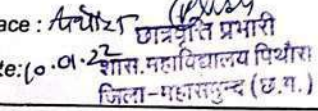 ace : पिथौरा
छात्रवृत्ति प्रभारी
te: 10.01.22 शास. महाविद्यालय पिथौरा
जिला-महासमुन्द (छ.ग.)